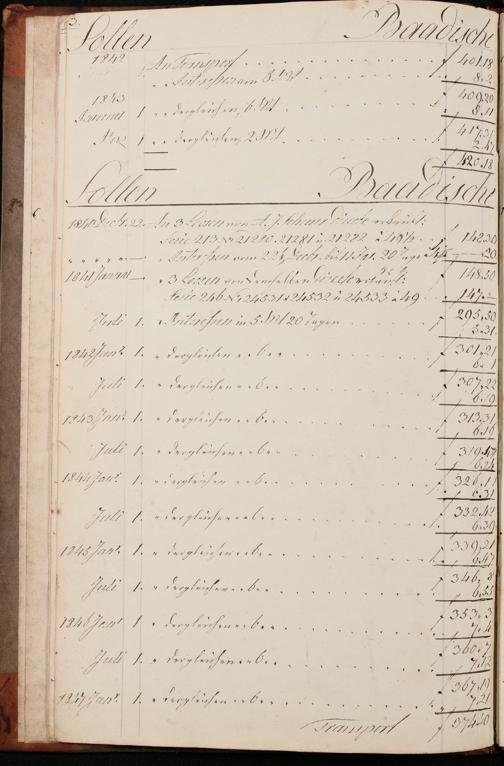 63.
Sollen Baadische
1842 An Transport f 401.18
" Interessen vom 8. 8.2
f 409.20
1843 Januar 1 " dergleichen, 6 Mt 8.11
f 417.31
März 1 " dergleichen, 2 Mt 2.47
f 420.18
Sollen Baadische
1840 Decbr. 22. An 3 Loosen von A. J. Schuns Direct erkauft:
Serie 213 N. 21280. 21281 u. 21282 à 49½ f 148.30
" Interessen vom 22 Decb. bis 11 Jan. 20 Tage .20
1841 Januar " 3 Loosen von demselben Direct erkauft: f 148.50
Serie 246 N. 24531. 24532 u. 24533 à 49 147.
f 295.50
Juli 1. " Interessen in 5 Mt 20 Tagen 5.31
f 301.21
1842 Jan. 1. " dergleichen " 6 " 6.1
f 307.22
Juli 1. " dergleichen " 6 " 6.9
f 313.31
1843 Jan. 1. " dergleichen " 6 " 6.16
f 319.47
Juli 1. " dergleichen " 6 " 6.24
f 326.11
1844 Jan. 1. " dergleichen " 6 " 6.31
f 332.42
Juli 1. " dergleichen " 6 " 6.39
f 339.21
1845 Jan. 1. " dergleichen " 6 " 6.47
f 346.8
Juli 1. " dergleichen " 6 " 6.55
f 353.3
1846 Jan. 1. " dergleichen " 6 " 7.4
f 360.7
Juli 1. " dergleichen " 6 " 7.12
f 367.19
1847 Jan. 1. " dergleichen " 6 " 7.21
Transport f 374.40